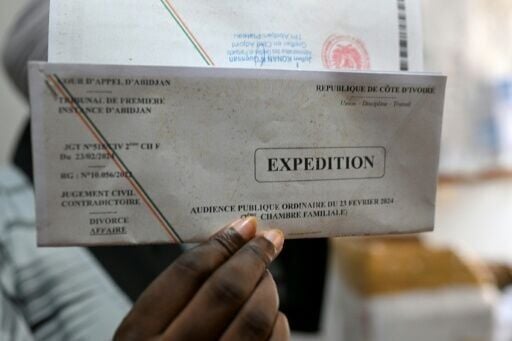 Julien KONAN N'Guessan
Greffier en Chef Adjoint
TPI Abidjan-Plateau
COUR D'APPEL D'ABIDJAN
REPUBLIQUE DE CÔTE D'IVOIRE
TRIBUNAL DE PREMIERE
Union – Discipline – Travail
INSTANCE D'ABIDJAN
CIV 2ème CH F
Du 23/02/2024
EXPEDITION
RG : N°10.056/
JUGEMENT CIVIL
CONTRADICTOIRE
AUDIENCE PUBLIQUE ORDINAIRE DU 23 FEVRIER 2024
CHAMBRE FAMILIALE)
DIVORCE
AFFAIRE